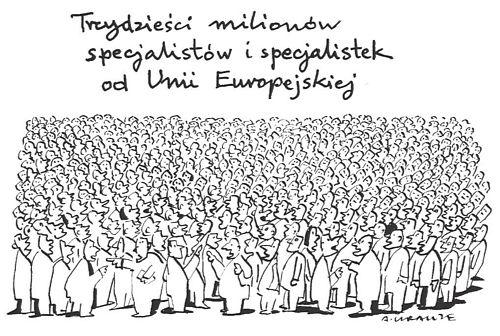 Trzydzieści milionów
specjalistów i specjalistek
od Unii Europejskiej
A. KRAUZE